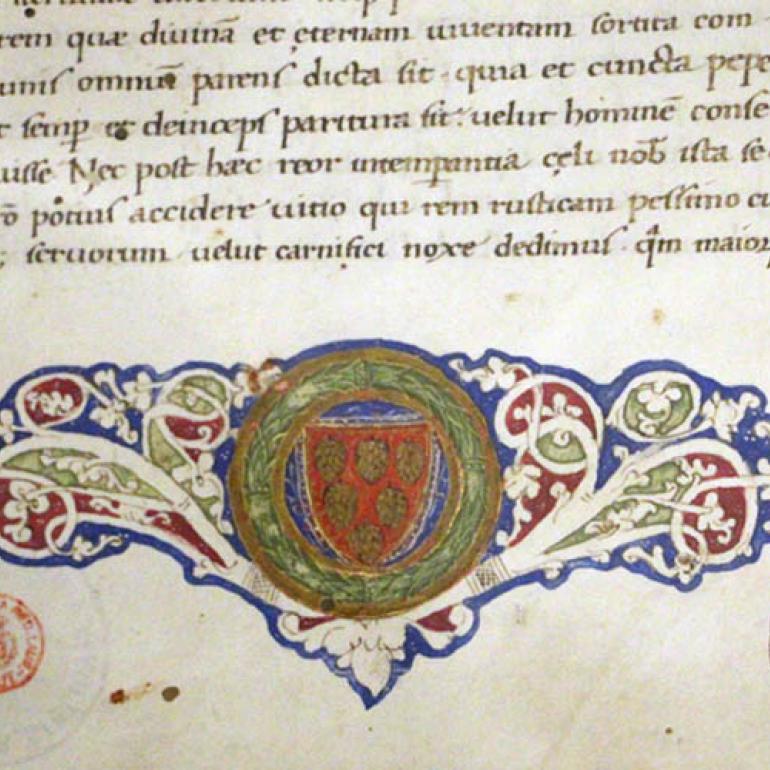 rem quæ diuinā et ęternam iuuentam sortita com
unis omniū parens dicta sit quia et cuncta pepe
t semp et deinceps paritura sit: uelut hominē conse
uisse Nec post hæc reor intempantia cęli nob ista se
ō potius accidere uitio qui rem rusticam pessimo cu
seruorum uelut carnifici noxe dedimus qm maior